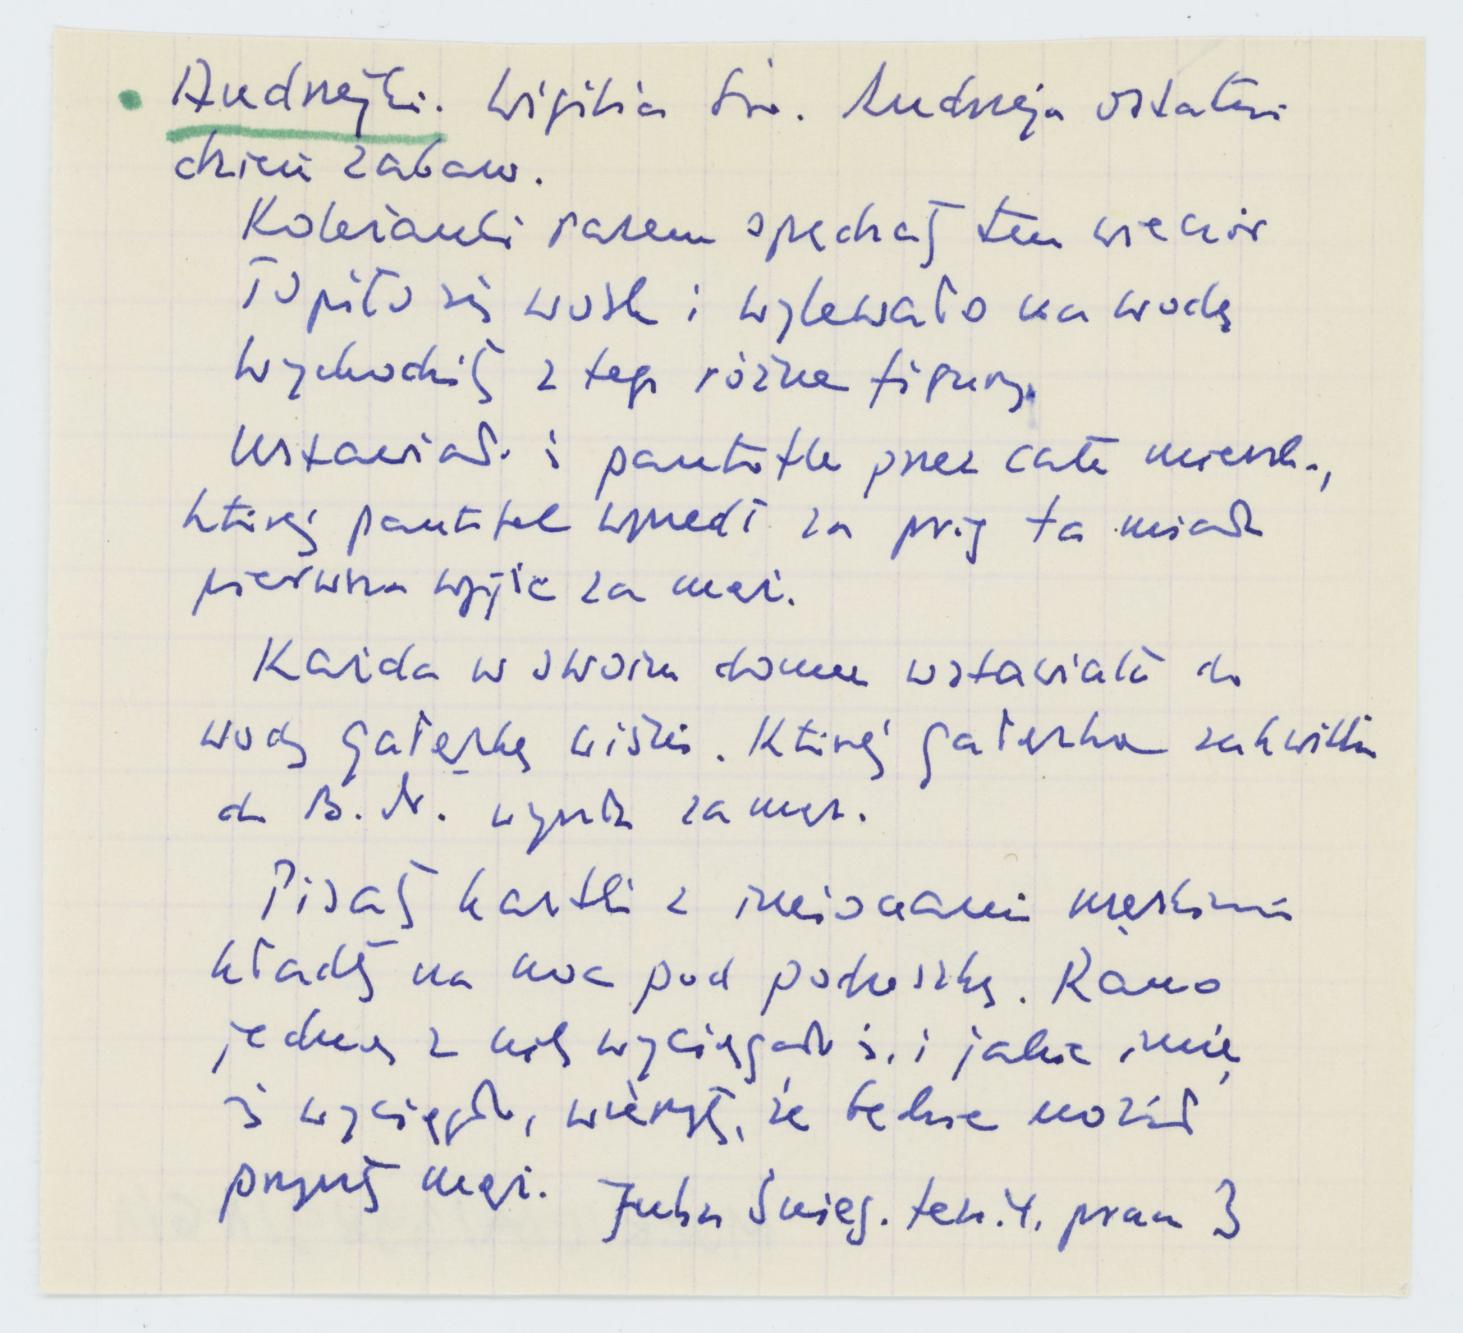 Andrzejki. Wigilia Św. Andrzeja ostatni
dzień zabaw.
Koleżanki razem spędzały ten wieczór
Topiło się wosk i wylewało na wodę
Wychodziły z tego różne figury.
Ustawiało i pantofle przez całe mieszk.,
której pantofel wyszedł za próg ta miała
pierwsza wyjść za mąż.
Każda w swoim domu wstawiała do
wody gałązkę wiśni. Której gałązka zakwitła
do B. N. wyszła za mąż.
Pisały kartki z imionami męskimi
kładły na noc pod poduszkę. Rano
jedną z nich wyciągało się, i jakie imię
się wyciągło, wierzyły, że będzie nosił
przyszły mąż. Julia Śnieg. ten. 4. praca 3